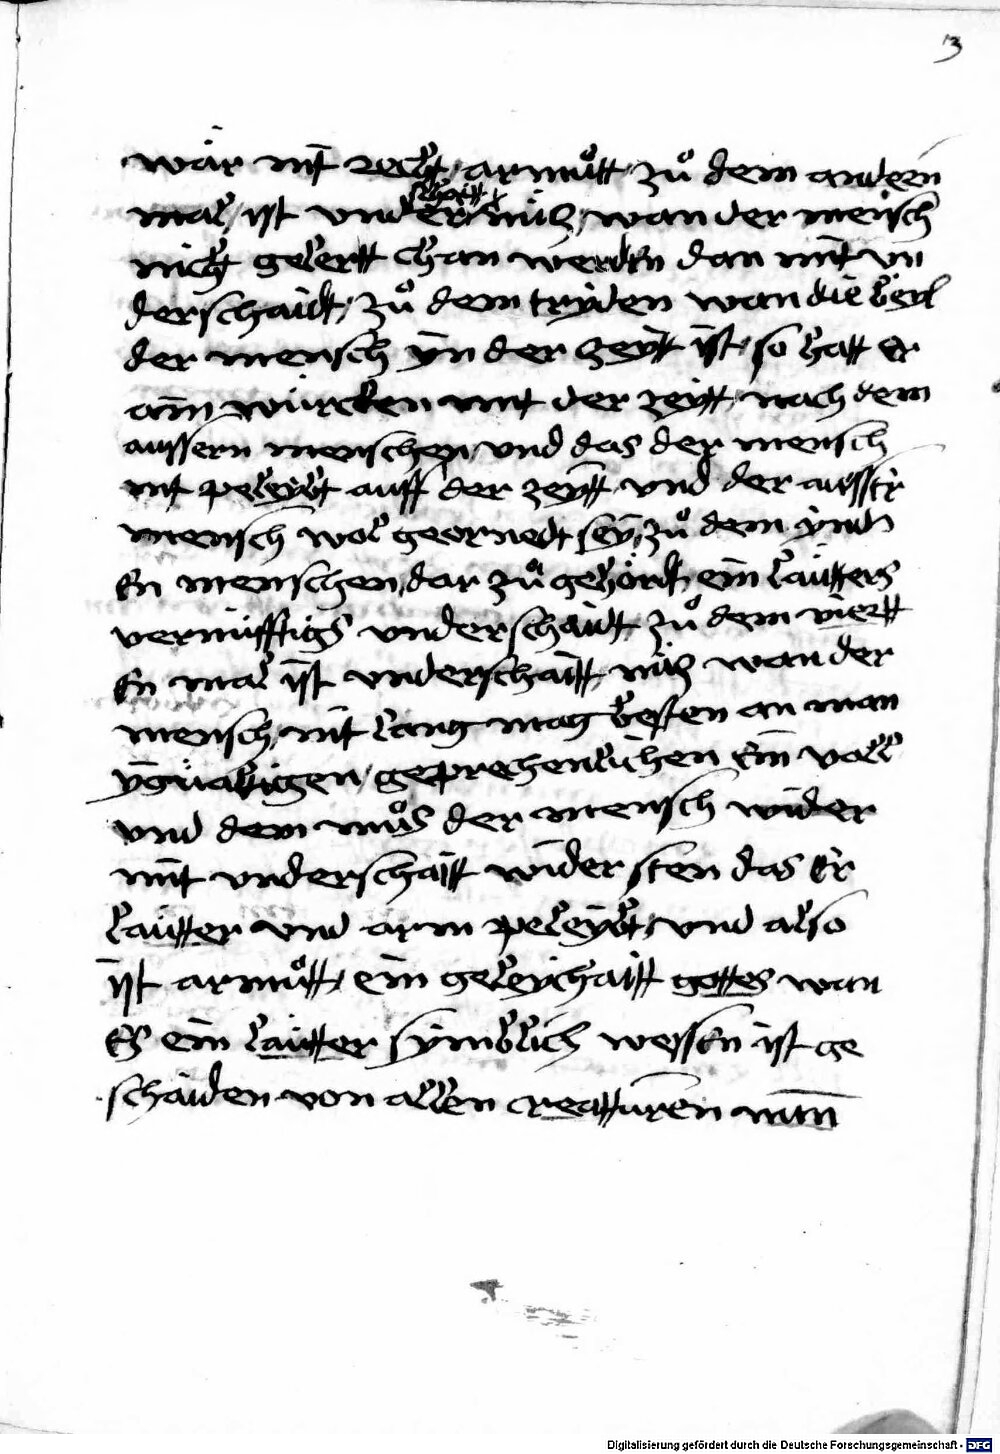 3
wär nit recht armůtt zů dem andern
mal ist vnderschaitt nücz wan der mensch
nicht gelertt chan werden dan mit vn
derschaidt zů dem tryden wan die beyl
der mensch yn der zeytt ist so hatt er
ain würcken mit der zeytt nach dem
aussern menschen vnd das der mensch
nit peleybt auff der zeytt vnd der ausser
mensch wol geornedt sey zů dem ynd
en menschen dar zů gehördt ein lautters
vernüfftigs vnderschaidt zů dem viertt
en mal ist vnderschaitt nücz wan der
mensch nit lang mag besten an man
gebrechenlichen ein vall
vnd dem můs der mensch wider
mit vnderschaitt wider sten das er
lautter vnd arm peleybt vnd also
ist armůtt ein geleychaitt gottes wan
es ein lautter symblich wessen ist ge
schaiden von allen creatturen
Digitalisierung gefördert durch die Deutsche Forschungsgemeinschaft - DFG